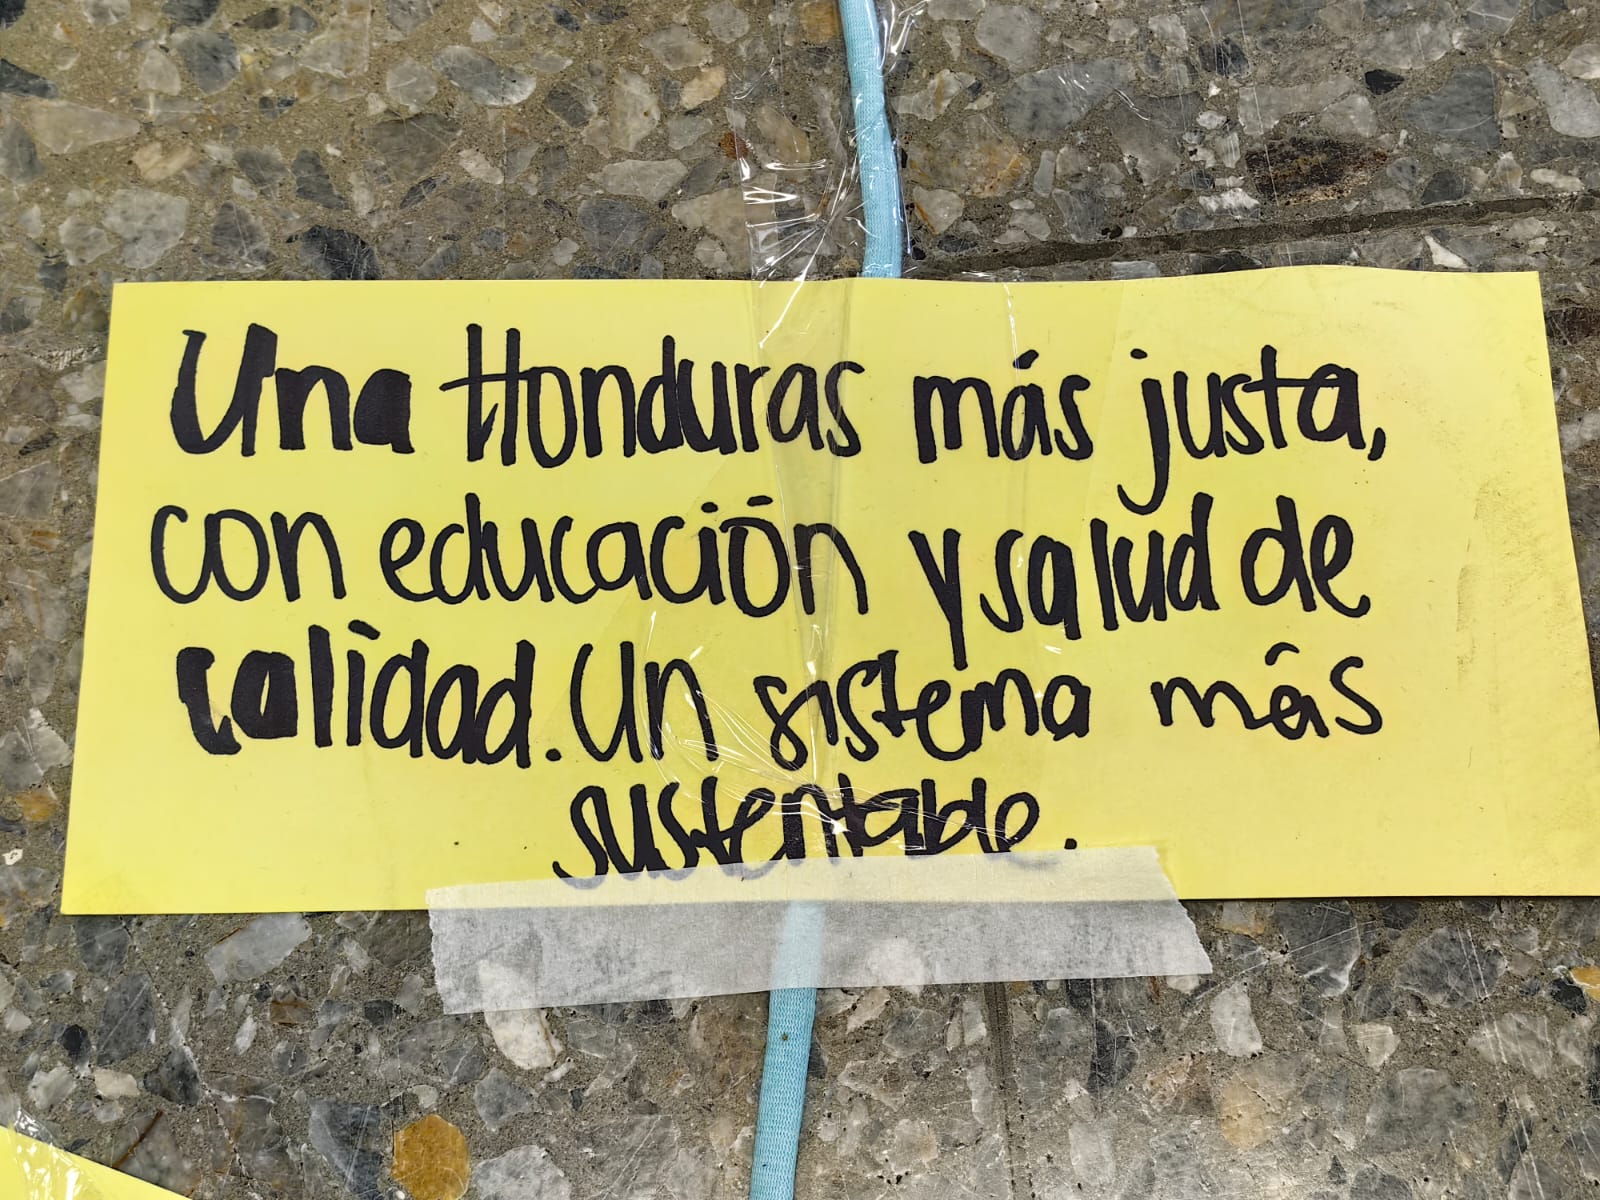 Una Honduras más justa,
con educación y salud de
calidad. Un sistema más
sustentable.